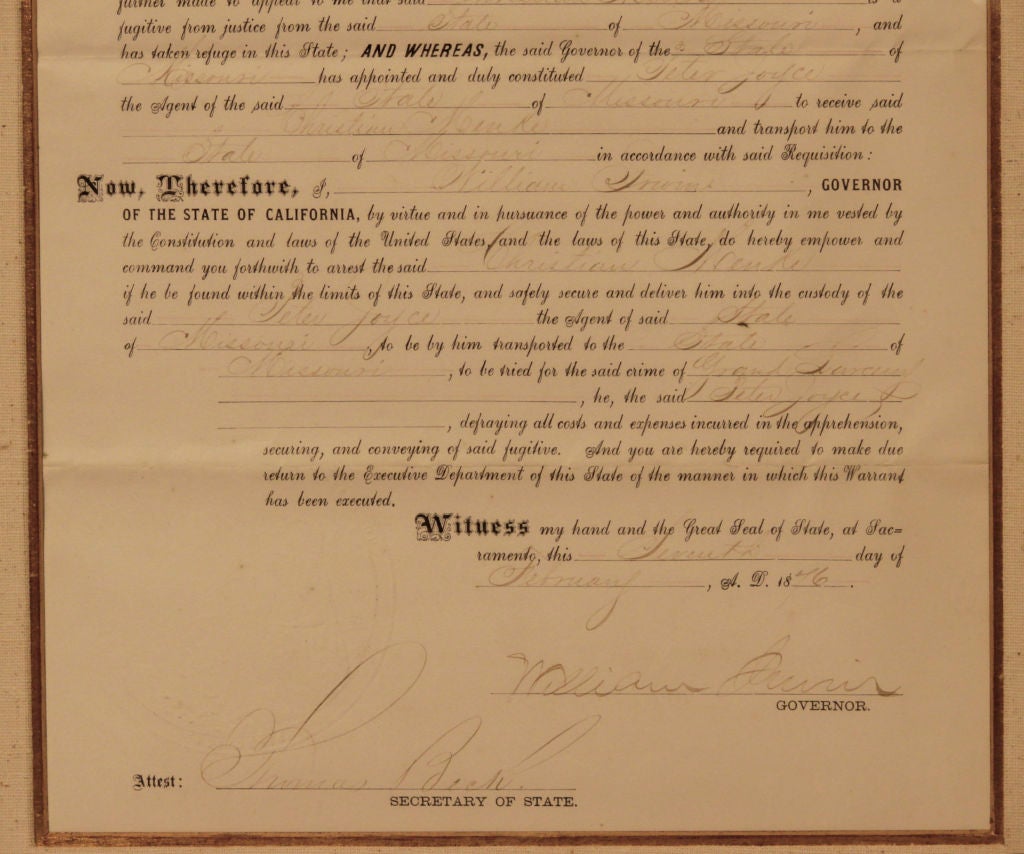 further made to appear to me that said is a
fugitive from justice from the said State of Missouri, and
has taken refuge in this State; AND WHEREAS, the said Governor of the State of
Missouri has appointed and duly constituted Peter Joyce
the Agent of the said State of Missouri to receive said
Christian Henke and transport him to the
State of Missouri in accordance with said Requisition:
Now, Therefore, I, William Irwin, GOVERNOR
OF THE STATE OF CALIFORNIA, by virtue and in pursuance of the power and authority in me vested by
the Constitution and laws of the United States, and the laws of this State, do hereby empower and
command you forthwith to arrest the said Christian Henke
if he be found within the limits of this State, and safely secure and deliver him into the custody of the
said Peter Joyce the Agent of said State
of Missouri, to be by him transported to the State of
Missouri, to be tried for the said crime of Grand Larceny
, he, the said Peter Joyce
, defraying all costs and expenses incurred in the apprehension,
securing, and conveying of said fugitive. And you are hereby required to make due
return to the Executive Department of this State of the manner in which this Warrant
has been executed.
Witness my hand and the Great Seal of State, at Sac=
ramento, this Seventh day of
February, A. D. 1876.
William Irwin
GOVERNOR.
Attest: Thomas Beck
SECRETARY OF STATE.